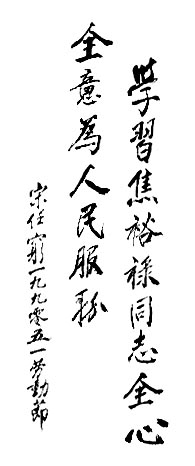 學習焦裕祿同志全心
全意為人民服務
宋任窮一九九零五一勞動節